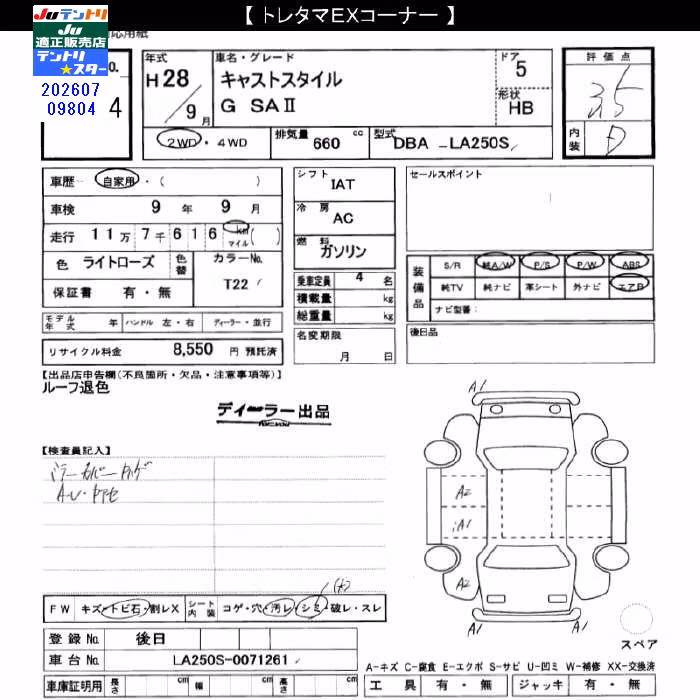 【 トレタマEXコーナー 】
JUテントリ
JU
適正販売店
テントリ
★スター
応用紙
No.
202607
09804
4
年式
H 28 / 9 月
車名・グレード
キャストスタイル
G SAⅡ
ドア
5
形状
HB
評価点
3.5
内装
D
2WD・4WD
排気量 660 cc
型式 DBA -LA250S
車歴 自家用・( )
車検 9 年 9 月
走行 11万 7千 616 km マイル ( )
色 ライトローズ
色替
カラーNo.
T22
保証書 有・無
モデル年式 年
ハンドル 左・右
ディーラー・並行
リサイクル料金 8,550 円 預託済
シフト
IAT
冷房
AC
燃料
ガソリン
乗車定員 4 名
積載量 kg
総重量 kg
名変期限
月 日
セールスポイント
装備品
S/R 純A/W P/S P/W ABS
純TV 純ナビ 革シート 外ナビ エアB
ナビ型番:
後日品
【出品店申告欄(不良箇所・欠品・注意事項等)】
ルーフ退色
ディーラー出品
【検査員記入】
ミラーカバーキズ
A・U・ヤケセ
FW キズ・トビ石・割レX
シート内装 コゲ・穴・汚レ・シミ・破レ・スレ
(大)
登録No. 後日
車台No. LA250S-0071261
車庫証明用 長さ cm 幅 cm 高さ cm
A1
A2
A1
A2
A1
A1
スペア
A-キズ C-腐食 E-エクボ S-サビ U-凹ミ W-補修 XX-交換済
工具 有・無 ジャッキ 有・無